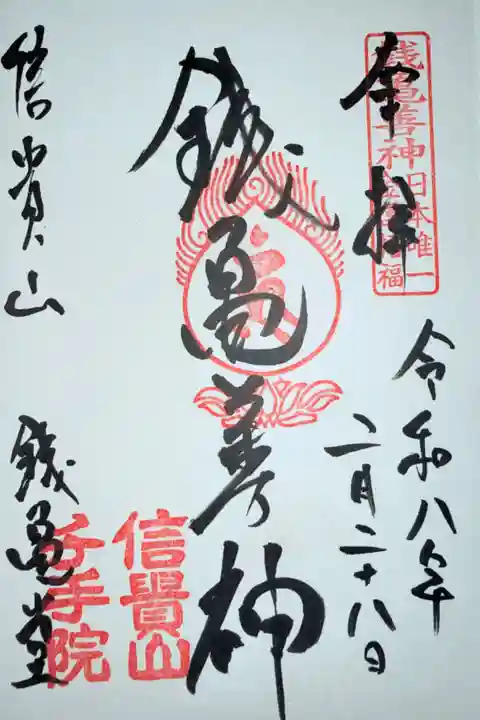 奉拝
銭亀善神
日本唯一
福
令和八年
二月二十八日
銭亀善神
信貴山
銭亀堂
信貴山
千手院